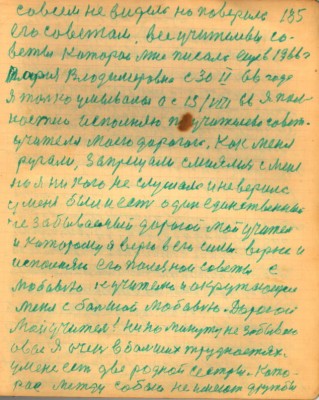 совсем не видила но поверила 185
его советам, все учителевы со-
веты которое мне писала еще в 1966 г
Мария Владимировна с 30 II 66 года
я только умывалас а с 13/VIII 66 я пол
ностью исполняю учителево совет.
учителя моего дорогого. Как меня
ругали, запрещали смиялись с меня
но я ни кого не слушала и неверила
у меня были и ест один единственный
не забываемый дорогой мой учител
и которому я верю в его силы верю и
исполняю его полезной советы с
любовью к учителю и окружающие
меня с болшой любовью. Дорогой
Мой учител! ни по минуту не забываю
о вас я очен в болших трудностях.
у мене ест две родной сестры. Кото-
рые между собою не имеют дружбы